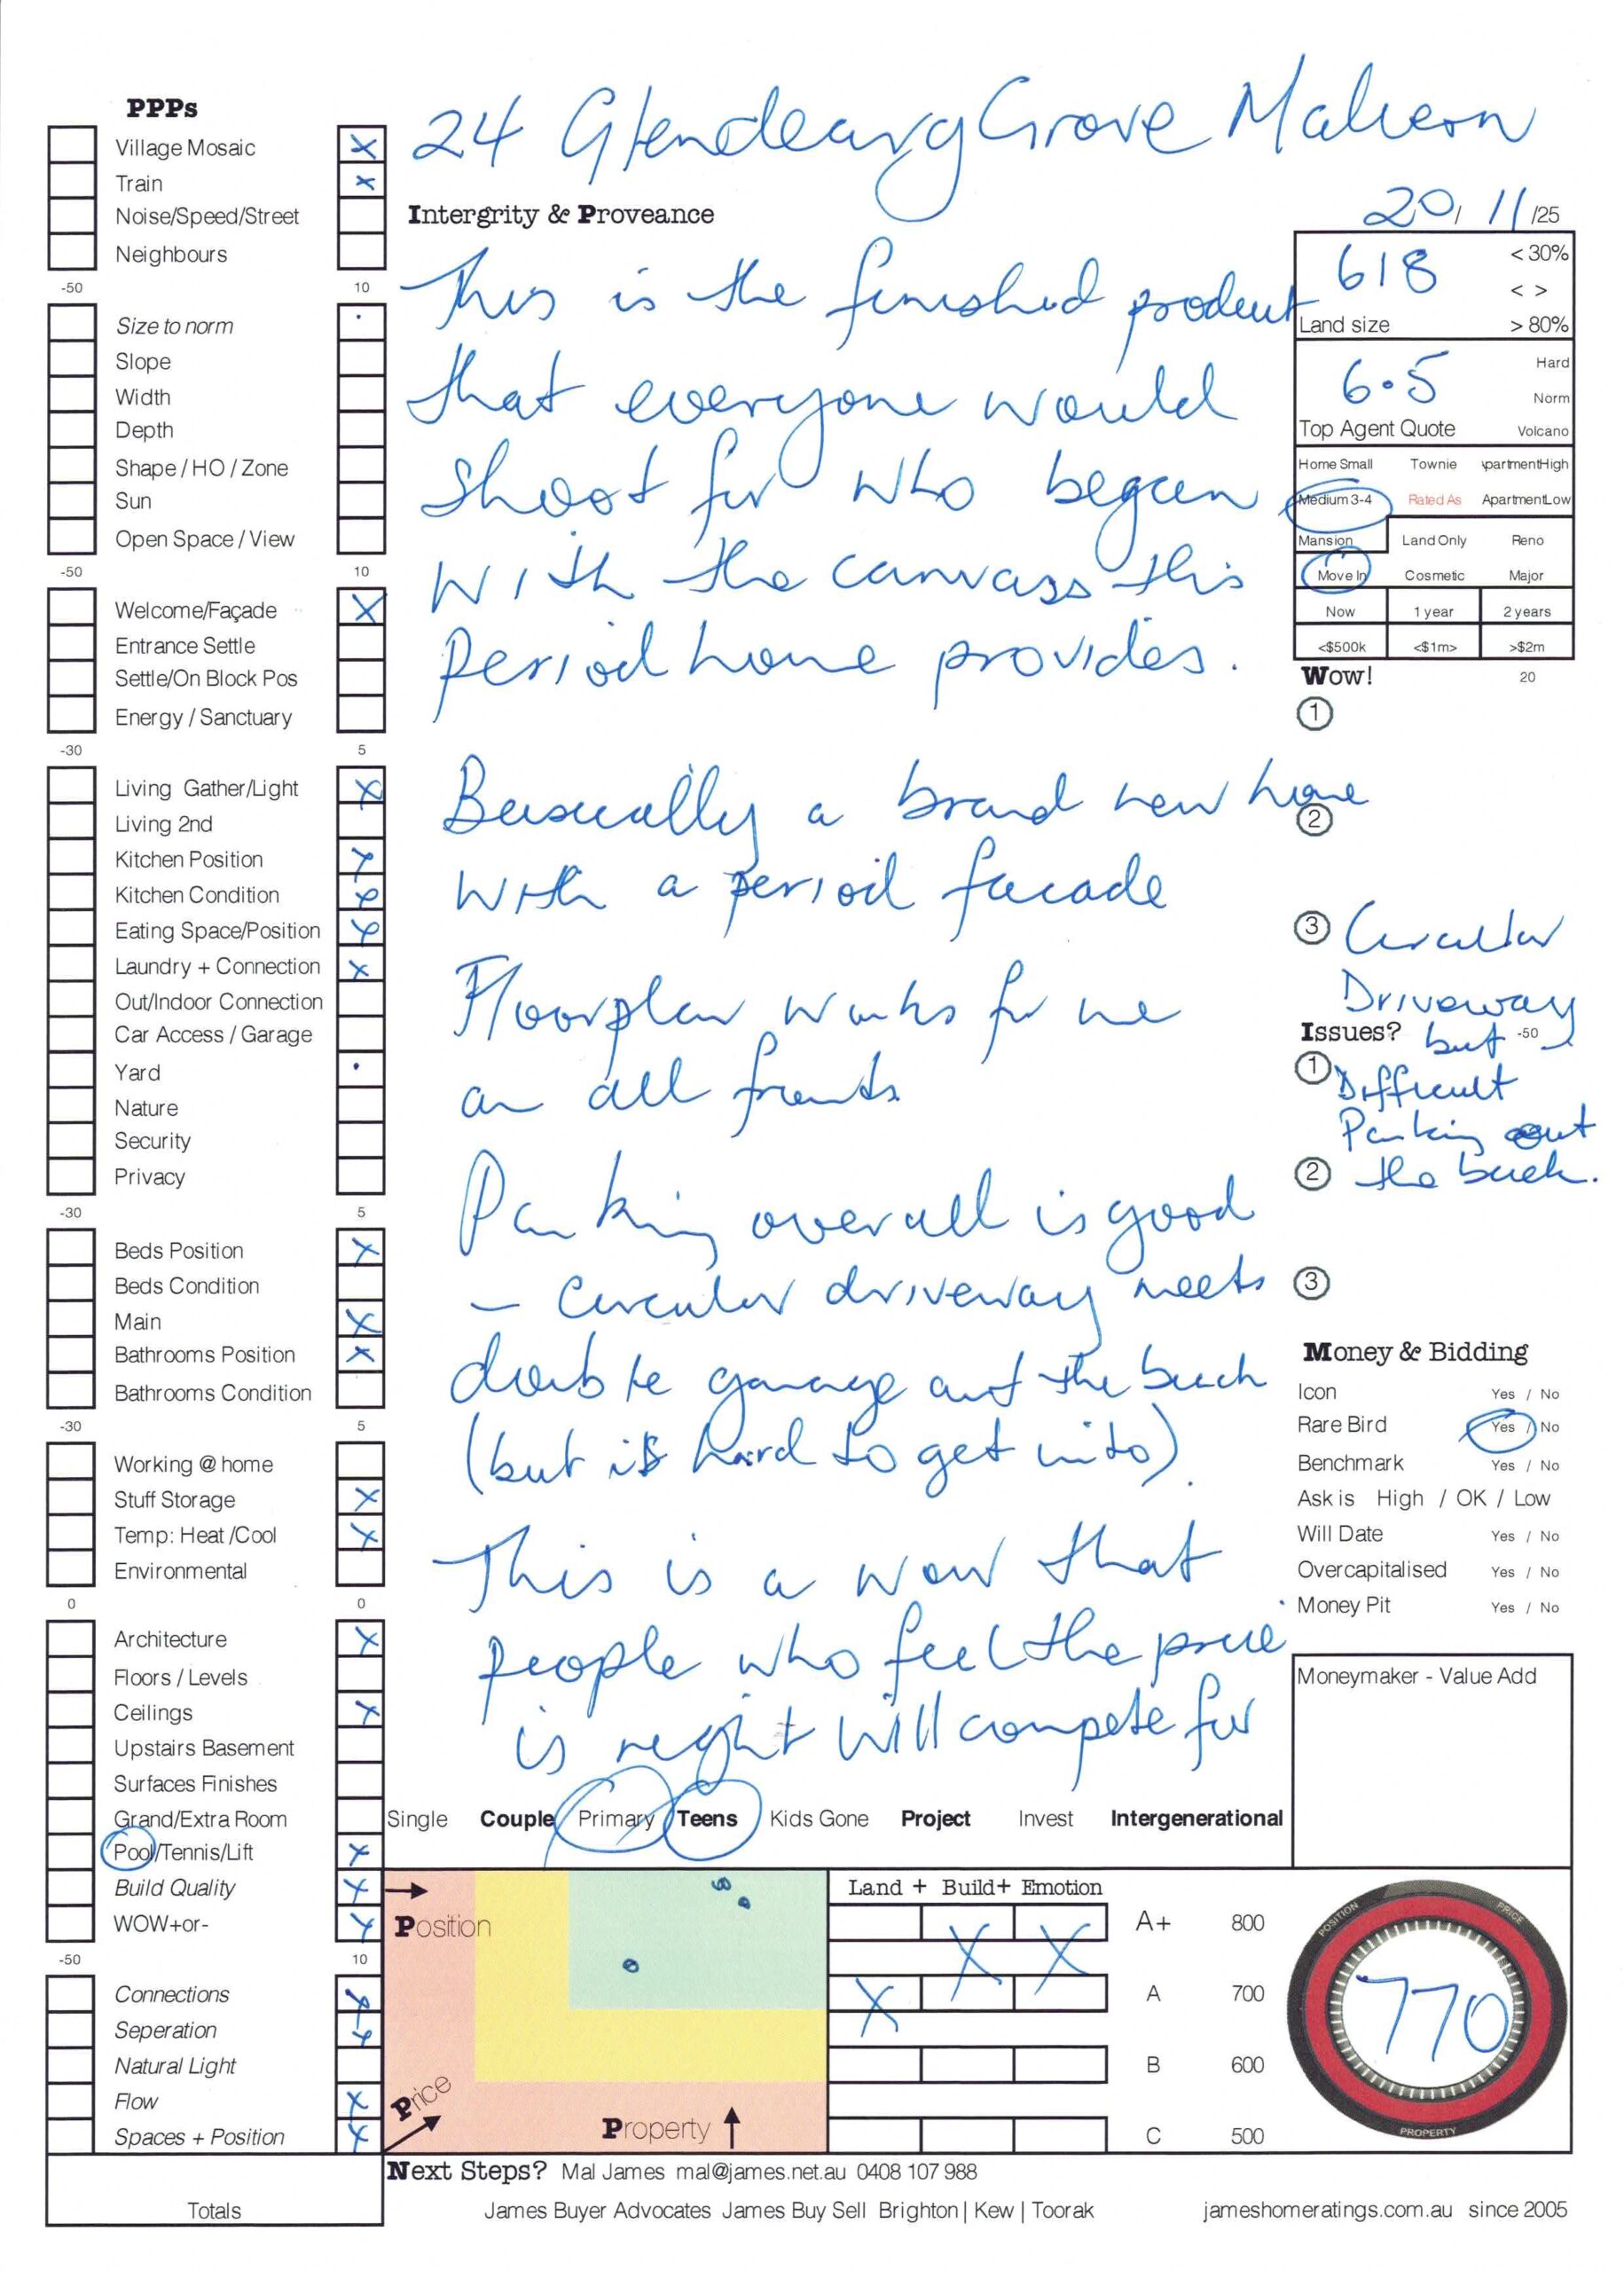 24 Glendearg Grove Malvern
PPPs
Village Mosaic
Train
Noise/Speed/Street
Neighbours
-50 10
Size to norm
Slope
Width
Depth
Shape / HO / Zone
Sun
Open Space / View
-50 10
Welcome/Façade
Entrance Settle
Settle/On Block Pos
Energy / Sanctuary
-30 5
Living Gather/Light
Living 2nd
Kitchen Position
Kitchen Condition
Eating Space/Position
Laundry + Connection
Out/Indoor Connection
Car Access / Garage
Yard
Nature
Security
Privacy
-30 5
Beds Position
Beds Condition
Main
Bathrooms Position
Bathrooms Condition
-30 5
Working @ home
Stuff Storage
Temp: Heat /Cool
Environmental
0 0
Architecture
Floors / Levels
Ceilings
Upstairs Basement
Surfaces Finishes
Grand/Extra Room
Pool/Tennis/Lift
Build Quality
WOW+or-
-50 10
Connections
Seperation
Natural Light
Flow
Spaces + Position
Totals
Intergrity & Proveance
This is the finished product
that everyone would
shoot for who began
with the canvass this
period home provides.
Basically a brand new home
with a period facade
Floorplan works for me
on all fronts
Parking overall is good
- Circular driveway meets
double garage out the back
(but is hard to get into).
This is a wow that
people who feel the price
is right will compete for
20/11/25
618 < 30%
< >
Land size > 80%
6.5 Hard
Norm
Top Agent Quote Volcano
Home Small Townie \partmentHigh
Medium 3-4 Rated As ApartmentLow
Mansion Land Only Reno
Move In Cosmetic Major
Now 1 year 2 years
<$500k <$1m> >$2m
Wow! 20
1
2
3 Circular
Driveway
Issues? but -50
1 Difficult
Parking out
2 the back.
3
Money & Bidding
Icon Yes / No
Rare Bird Yes / No
Benchmark Yes / No
Ask is High / OK / Low
Will Date Yes / No
Overcapitalised Yes / No
Money Pit Yes / No
Moneymaker - Value Add
Single Couple Primary Teens Kids Gone Project Invest Intergenerational
Position
Price
Property
Land + Build+ Emotion
A+ 800
A 700
B 600
C 500
POSITION
PRICE
770
PROPERTY
Next Steps? Mal James mal@james.net.au 0408 107 988
James Buyer Advocates James Buy Sell Brighton | Kew | Toorak jameshomeratings.com.au since 2005